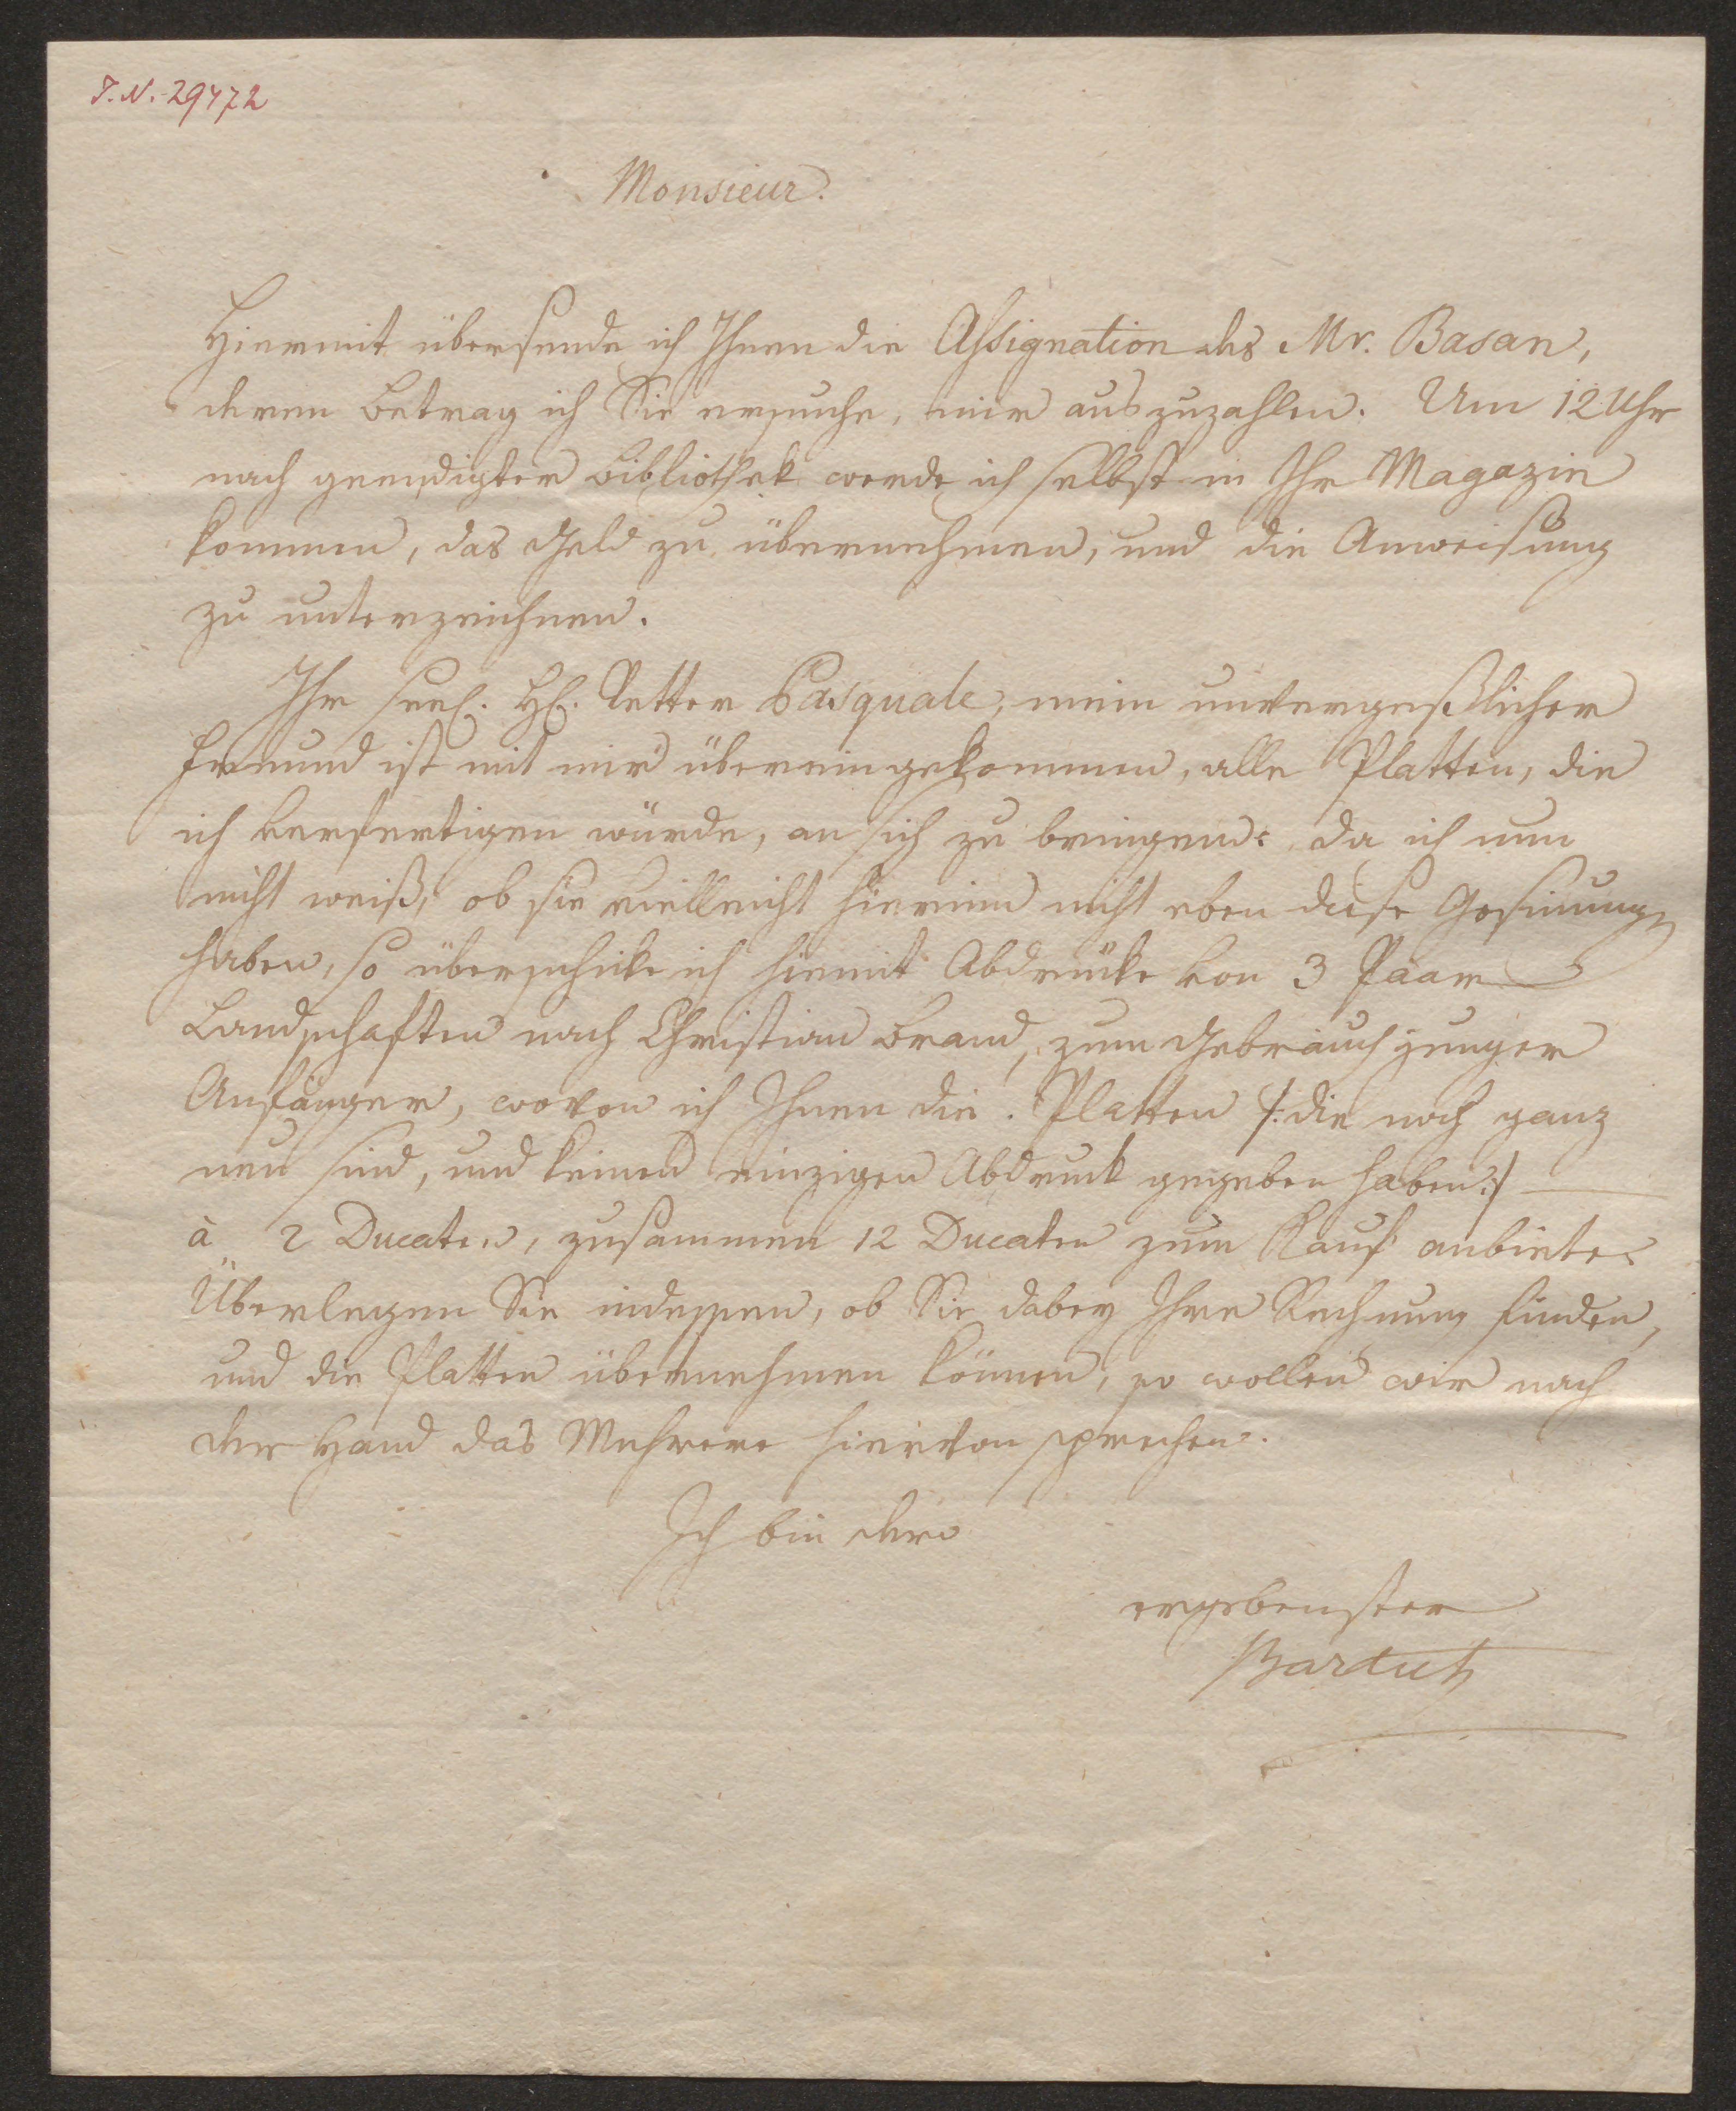 I.N. 29472
Monsieur.
Hiermit übersende ich Ihnen die Assignation des Mr. Basan,
deren Betrag ich Sie ersuche, mir auszuzahlen. Um 12 Uhr
nach geendigter Bibliothek werde ich selbst in Ihr Magazin
kommen, das Geld zu übernehmen, und die Anweisung
zu unterzeichnen.
Ihr seel. H. Vetter Pasquale, mein unvergeßlicher
Freund ist mit mir übereingekommen, alle Platten, die
ich verfertigen würde, an sich zu bringen: da ich nun
nicht weiß, ob sie vielleicht hierinn nicht eben diese Gesinnung
haben, so überschicke ich hiemit Abdrücke von 3 Paar
Landschaften nach Christian Brand, zum Gebrauch junger
Anfänger, wovon ich Ihnen die Platten /: die noch ganz
neu sind, und keinen einzigen Abdruck gegeben haben :/
à 2 Ducaten, zusammen 12 Ducaten zum Kauf anbiete.
Überlegen Sie indessen, ob Sie dabey Ihre Rechnung finden,
und die Platten übernehmen können, so wollen wir nach
der Hand das Mehrere hievon sprechen.
Ich bin dero
ergebenster
Bartsch